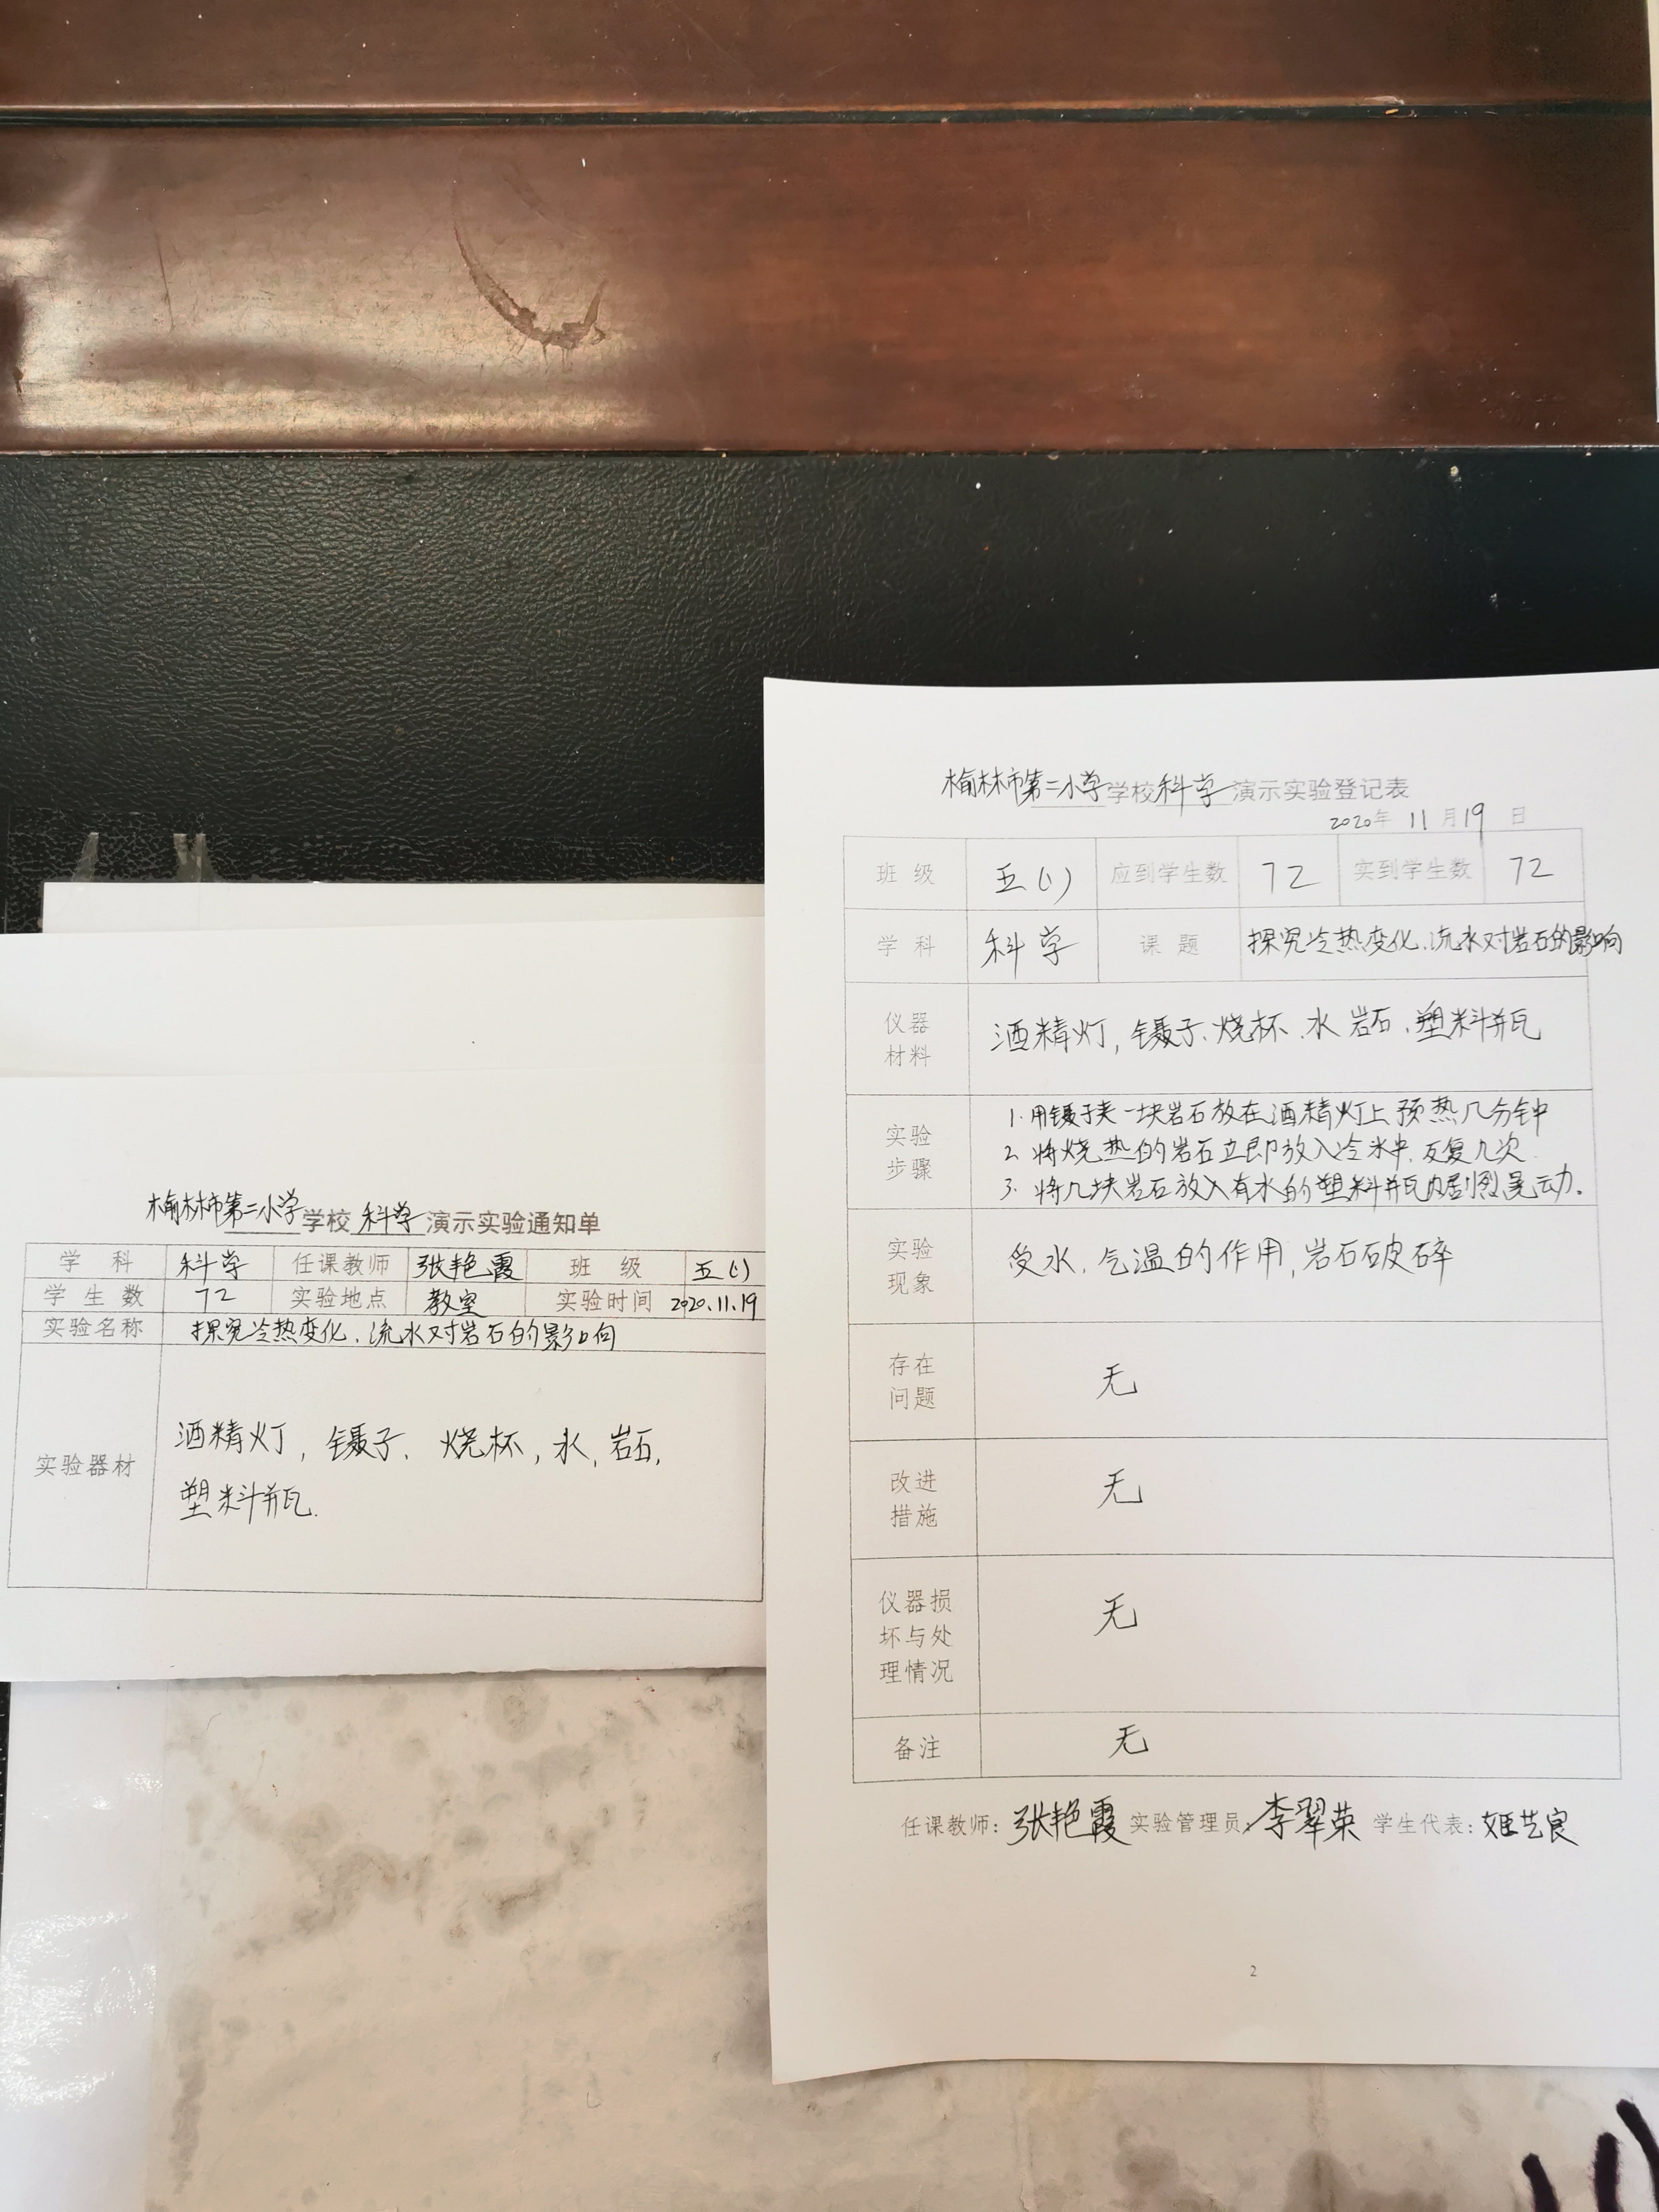 榆林市第二小学学校科学演示实验通知单
学科 科学 任课教师 张艳霞 班级 五(1)
学生数 72 实验地点 教室 实验时间 2020.11.19
实验名称 探究冷热变化、流水对岩石的影响
实验器材 酒精灯, 镊子、烧杯, 水、岩石,
塑料瓶.
榆林市第二小学学校科学演示实验登记表
2020年 11月19日
班级 五(1) 应到学生数 72 实到学生数 72
学科 科学 课题 探究冷热变化、流水对岩石的影响
仪器材料 酒精灯, 镊子、烧杯、水 岩石、塑料瓶
实验步骤 1.用镊子夹一块岩石放在酒精灯上预热几分钟
2.将烧热的岩石立即放入冷水中,反复几次.
3.将几块岩石放入有水的塑料瓶内剧烈晃动.
实验现象 受水、气温的作用,岩石破碎
存在问题 无
改进措施 无
仪器损坏与处理情况 无
备注 无
任课教师:张艳霞 实验管理员:李翠英 学生代表:姬艺良
2